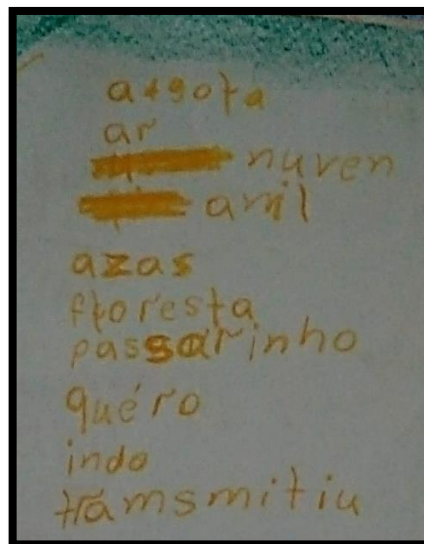 ar
nuven
anil
azas
floresta
passarinho
quéro
indo
tramsmitiu